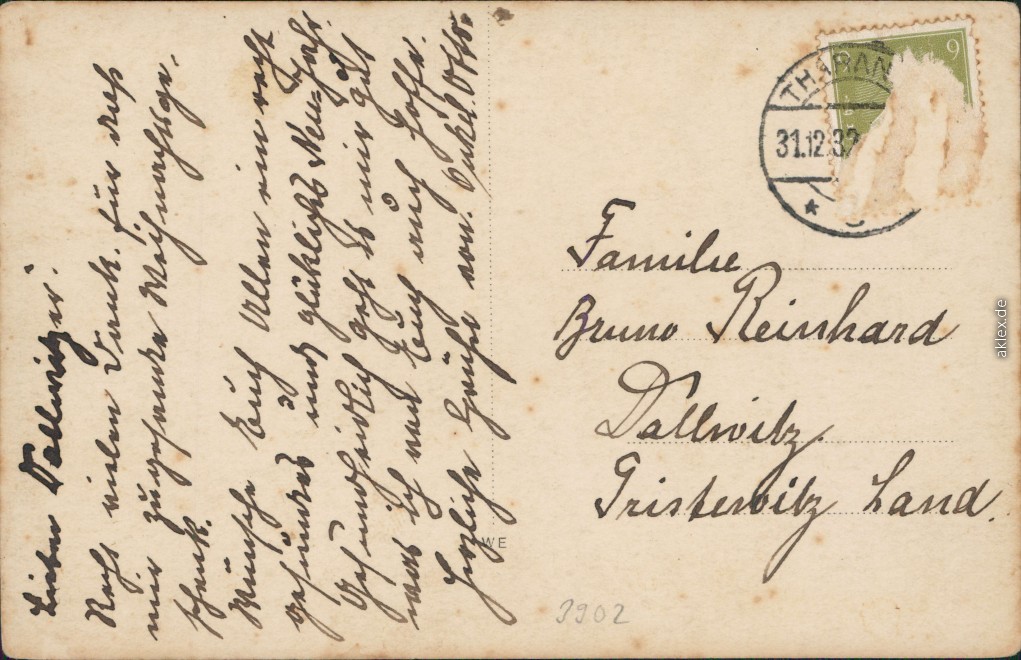 Lieben Dallwitzer.
Recht vielen Dank für das
mir zugesandte Weihnachtsge,
schenk.
Wünsche Euch Allen ein recht
gesundes und glückliches Neu-Jahr.
Gesundheitlich geht es mir gut
was ich von Euch auch hoffe.
Herzliche Grüße von. Onkel Otto.
THARAN
31.12.32
9
Familie
Bruno Reinhard
Dallwitz.
Pristewitz Land.
WE
3902
aklex.de